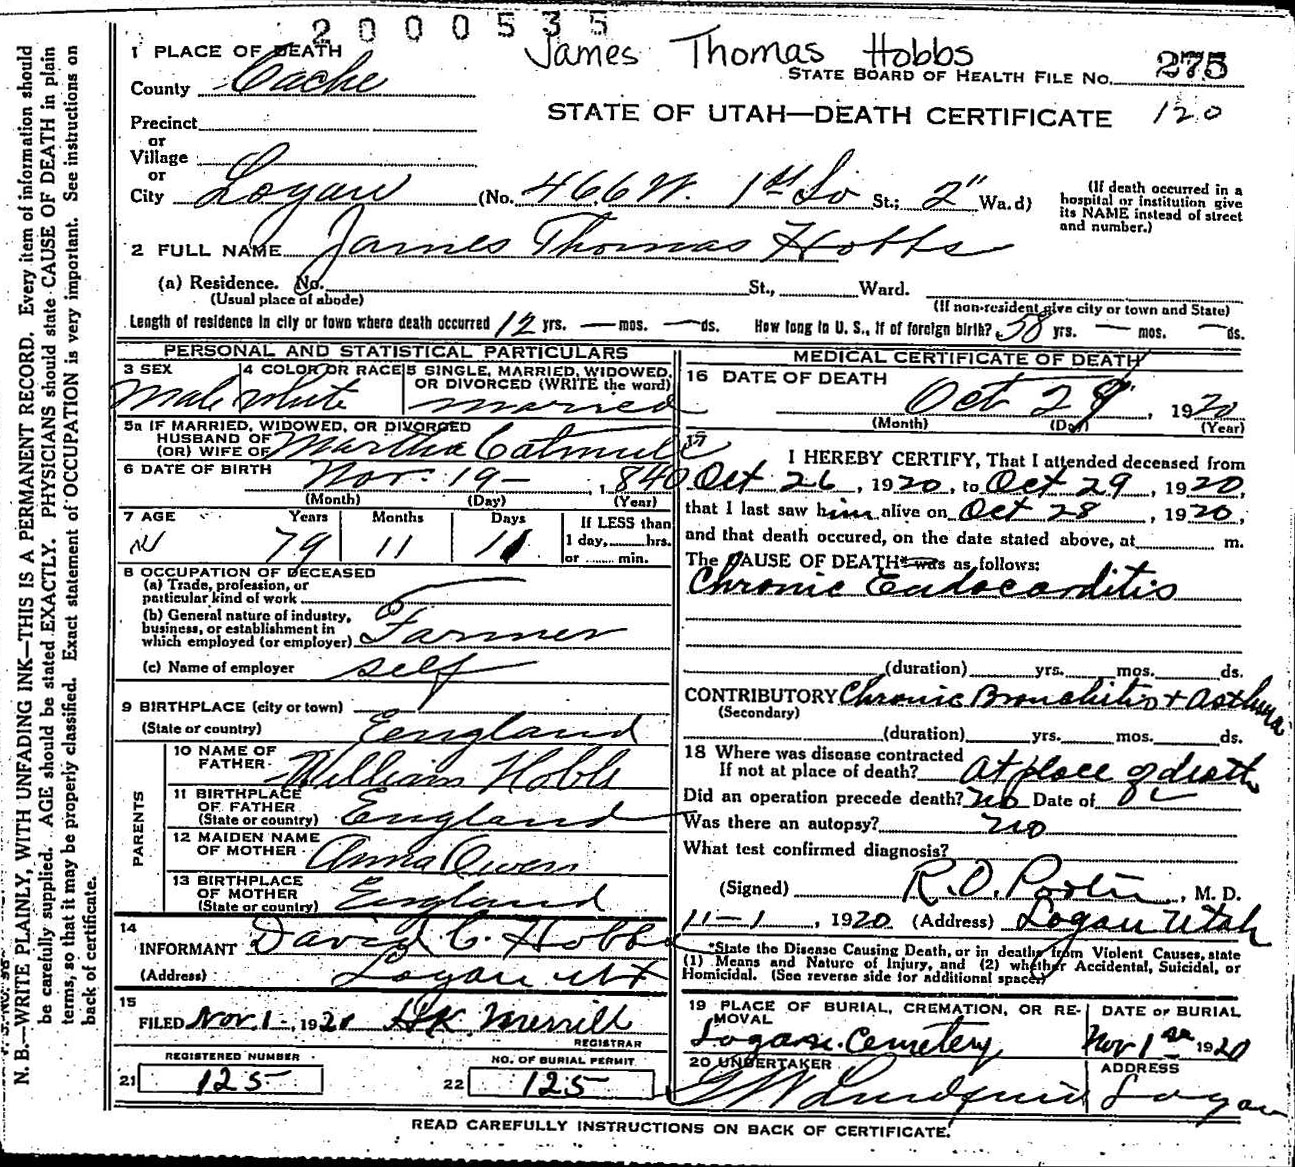 2000535
James Thomas Hobbs
1 PLACE OF DEATH
STATE BOARD OF HEALTH FILE NO. 275
County Cache
STATE OF UTAH—DEATH CERTIFICATE 120
Precinct
or
Village
or
City Logan (No. 466 W. 1st So St.; 2" Wa.d)
(If death occurred in a hospital or institution give its NAME instead of street and number.)
2 FULL NAME James Thomas Hobbs
(a) Residence. No. St., Ward.
(Usual place of abode)
(If non-resident give city or town and State)
Length of residence in city or town where death occurred 12 yrs. — mos. — ds. How long in U. S., if of foreign birth? 58 yrs. — mos. — ds.
PERSONAL AND STATISTICAL PARTICULARS
3 SEX
Male
4 COLOR OR RACE
White
5 SINGLE, MARRIED, WIDOWED, OR DIVORCED (WRITE the word)
married
5a IF MARRIED, WIDOWED, OR DIVORCED
HUSBAND OF
(OR) WIFE OF Martha Catmull
6 DATE OF BIRTH Nov. 19 — 1840
(Month) (Day) (Year)
7 AGE
Years Months Days
79 11
If LESS than
1 day, hrs.
or min.
8 OCCUPATION OF DECEASED
(a) Trade, profession, or
particular kind of work
(b) General nature of industry,
business, or establishment in
which employed (or employer) Farmer
(c) Name of employer self
9 BIRTHPLACE (city or town)
(State or country) England
PARENTS
10 NAME OF
FATHER William Hobbs
11 BIRTHPLACE
OF FATHER
(State or country) England
12 MAIDEN NAME
OF MOTHER Anna Owen
13 BIRTHPLACE
OF MOTHER
(State or country) England
14
INFORMANT David C. Hobbs
(Address) Logan Ut
15
FILED Nov 1-, 192 HK Merrill
REGISTRAR
REGISTERED NUMBER
21 125
NO. OF BURIAL PERMIT
22 125
MEDICAL CERTIFICATE OF DEATH
16 DATE OF DEATH
Oct 29, 1920
(Month) (Day) (Year)
17
I HEREBY CERTIFY, That I attended deceased from
Oct 26, 1920, to Oct 29, 1920,
that I last saw him alive on Oct 28, 1920,
and that death occured, on the date stated above, at m.
The CAUSE OF DEATH* was as follows:
Chronic Endocarditis
(duration) yrs. mos. ds.
CONTRIBUTORY Chronic Bronchitis + Asthma
(Secondary)
(duration) yrs. mos. ds.
18 Where was disease contracted
If not at place of death? At place of death
Did an operation precede death? no Date of
Was there an autopsy? no
What test confirmed diagnosis?
(Signed) R.O. Porter, M. D.
11-1, 1920 (Address) Logan Utah
*State the Disease Causing Death, or in deaths from Violent Causes, state
(1) Means and Nature of Injury, and (2) whether Accidental, Suicidal, or
Homicidal. (See reverse side for additional space.)
19 PLACE OF BURIAL, CREMATION, OR RE-
MOVAL
Logan Cemetery
DATE OF BURIAL
Nov 1st 1920
20 UNDERTAKER
Lundquist
ADDRESS
Logan
READ CAREFULLY INSTRUCTIONS ON BACK OF CERTIFICATE.
N. B.—WRITE PLAINLY, WITH UNFADING INK—THIS IS A PERMANENT RECORD. Every item of information should
be carefully supplied. AGE should be stated EXACTLY. PHYSICIANS should state CAUSE OF DEATH in plain
terms, so that it may be properly classified. Exact statement of OCCUPATION is very important. See instructions on
back of certificate.